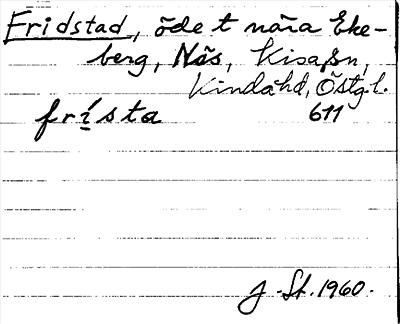 Fridstad, öde t nära Eke-
berg, Näs, Kisa sn,
Kinda hd, Östg.l.
frista 611
J. St. 1960.